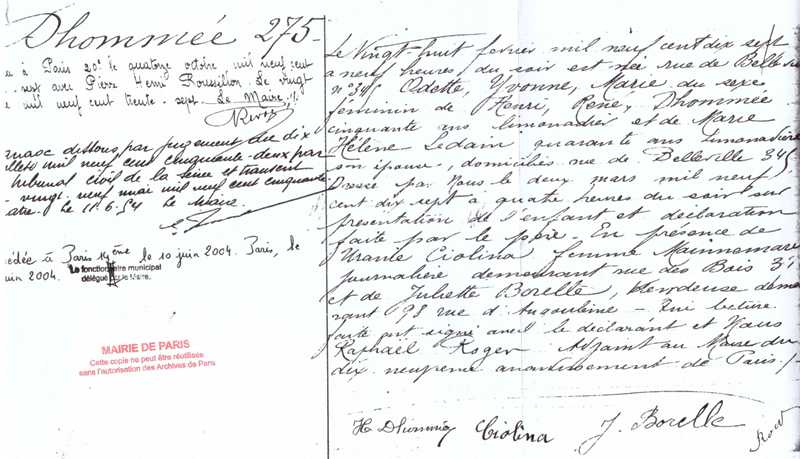 Dhommée 275
à Paris 20e le quatorze octobre mil neuf cent
sept avec Pierre Henri Roussillon. Le vingt
mil neuf cent trente-sept. Le Maire,
dissous par jugement du dix
mil neuf cent cinquante-deux par
tribunal civil de la Seine et transcrit
vingt neuf mai mil neuf cent cinquante
Le 11.6.54 Le Maire
à Paris 14ème le 10 juin 2004. Paris, le
juin 2004.
Le fonctionnaire municipal
délégué
MAIRIE DE PARIS
Cette copie ne peut être réutilisée
sans l'autorisation des Archives de Paris
Le Vingt-huit fevrier mil neuf cent dix sept
à neuf heures du soir est née rue de Belleville
n°345 Odette, Yvonne, Marie du sexe
féminin de Henri, René, Dhommée
cinquante ans limonadier et de Marie
Hélène Ledam quarante ans limonadière
son épouse domiciliés rue de Belleville 345
Dressé par Nous le deux mars mil neuf
cent dix sept à quatre heures du soir sur
présentation de l'enfant et declaration
faite par le père. En présence de
Ciolina femme
journalière demeurant rue des Bois
et de Juliette Borelle, Vendeuse demeu
rant 98 rue d'Angoulême - Qui lecture
faite ont signé avec le déclarant et Nous
Raphaël Roger Adjoint au Maire du
dix neuvième arrondissement de Paris./.
H Dhommée Ciolina J. Borelle